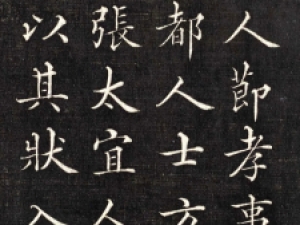 人節孝事
都人士方
張太宜人
以其狀入